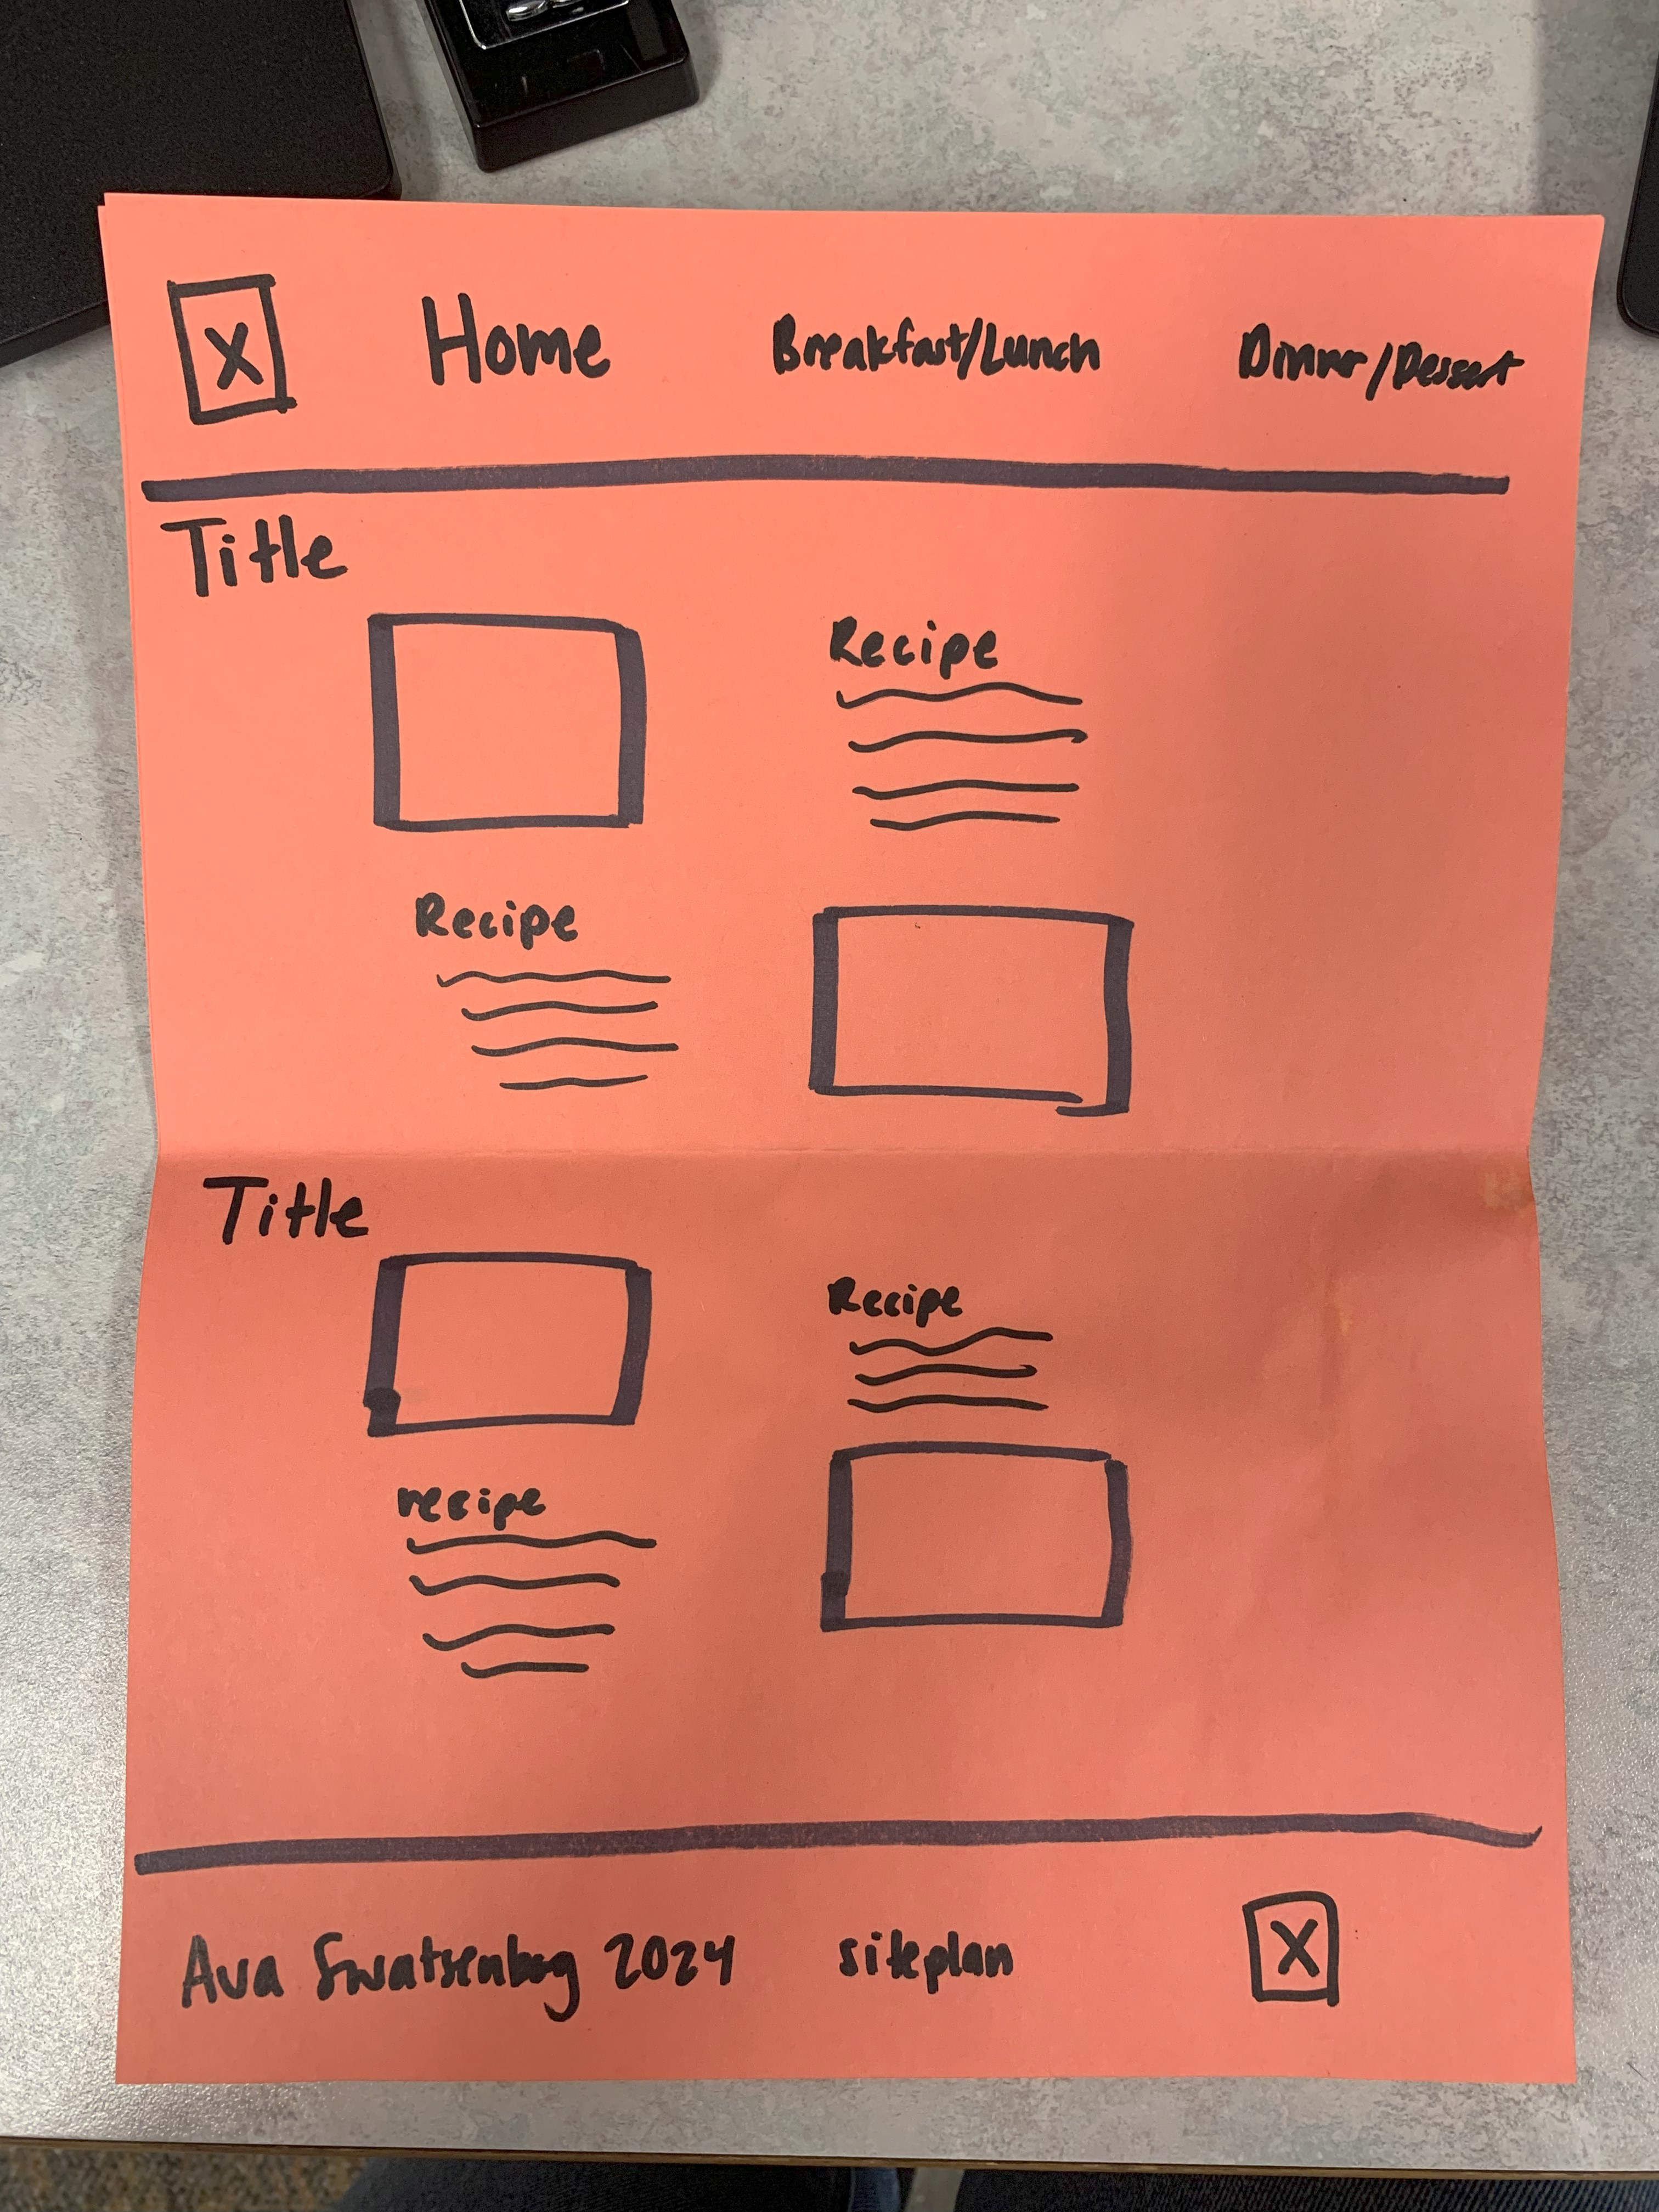 X Home Breakfast/Lunch Dinner/Dessert
Title
Recipe
Recipe
Title
Recipe
recipe
Ava 2024 siteplan X